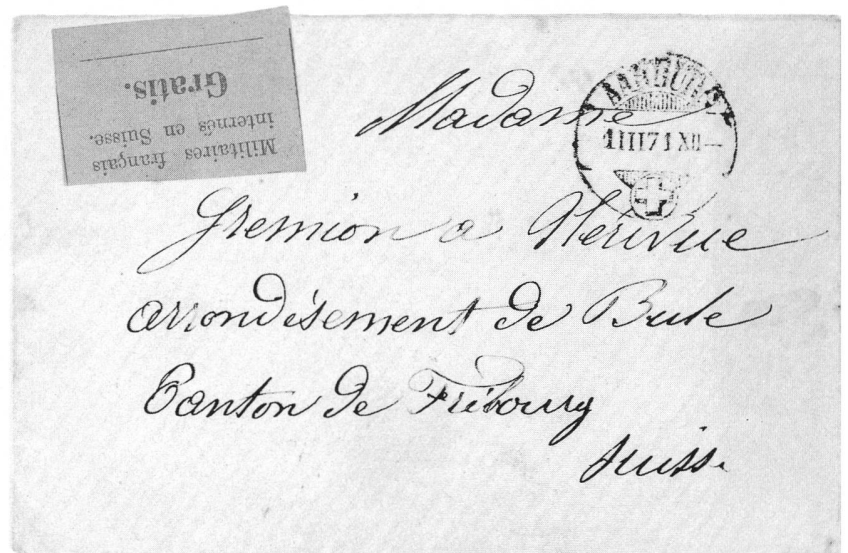 Militaires français
internés en Suisse.
Gratis.
AARBURG
1 III 71 XII—
Madame
Gremion a Nérivue
arrondisement de Bule
Canton de Fribourg
Suisse